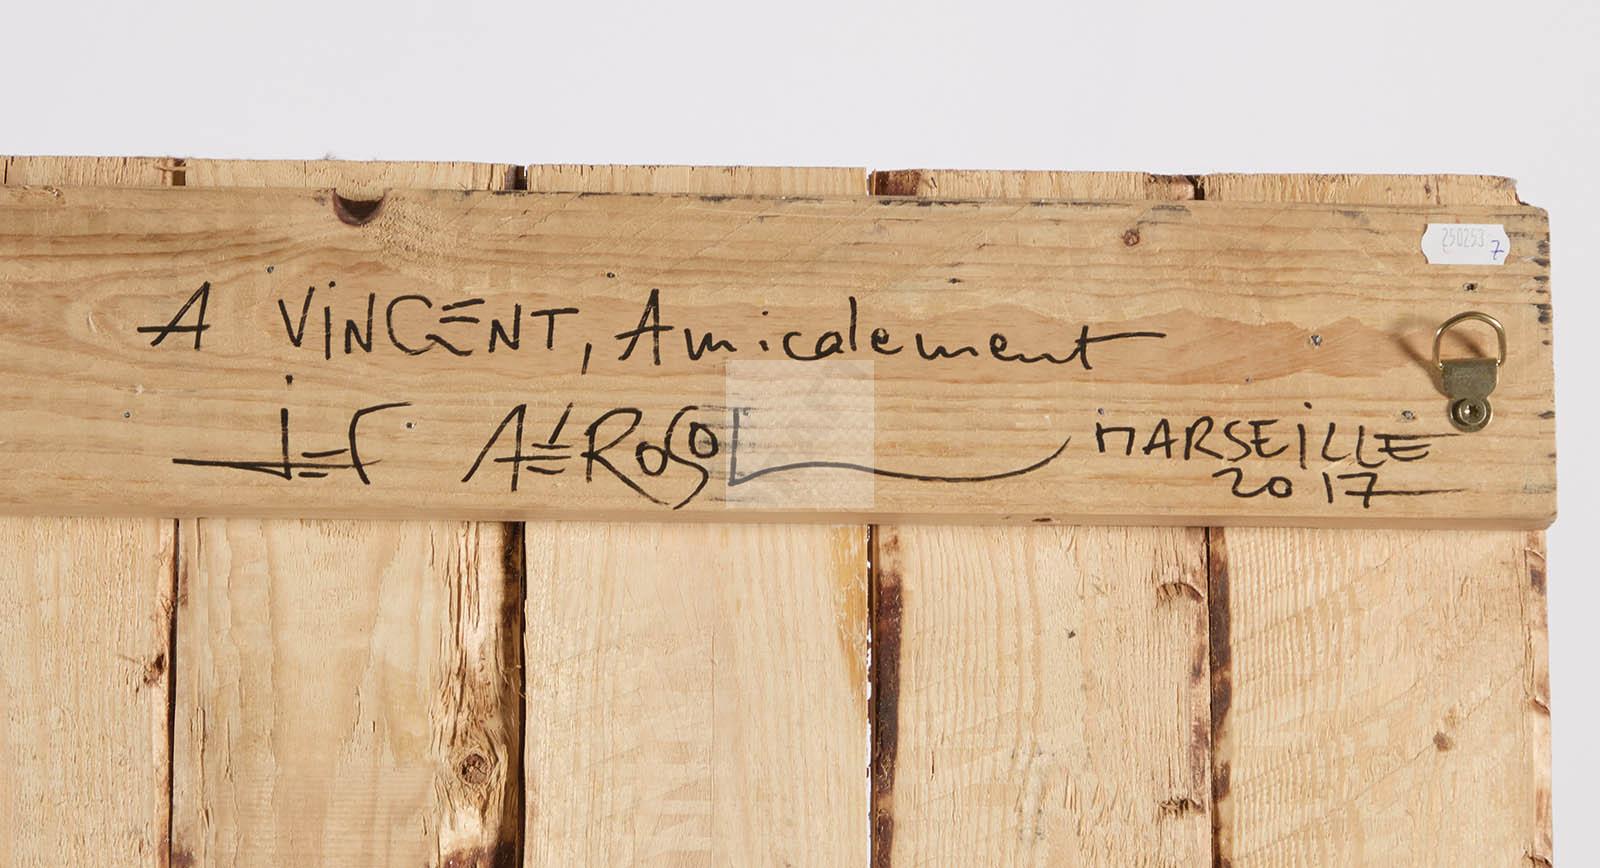 250253 7
A VINCENT, Amicalement
JEF AÉROSOL MARSEILLE
2017